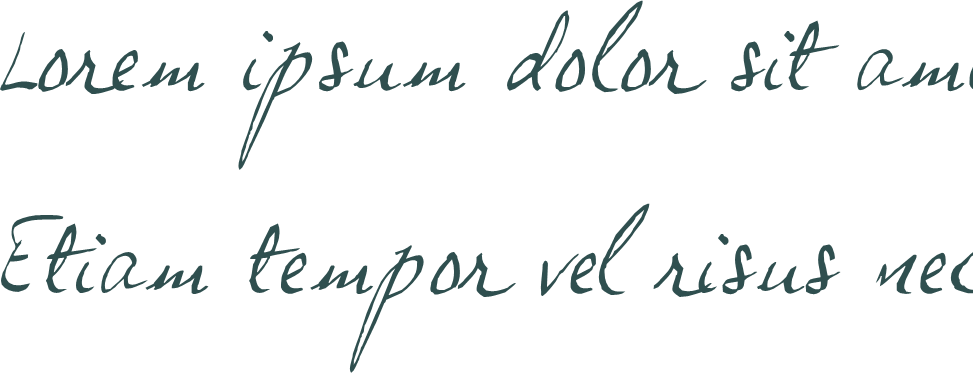 Lorem ipsum dolor sit am
Etiam tempor vel risus nec